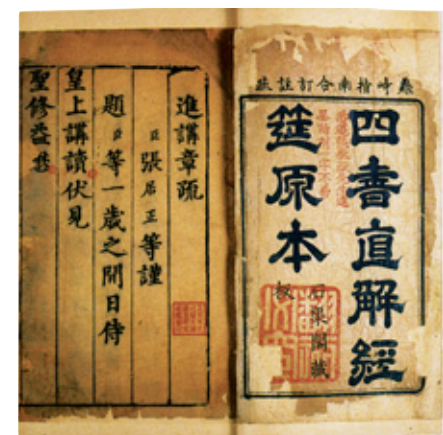 鼎峙指南合訂註疏
四書直解經
筵原本
石渠閣藏
板
進講章疏
臣張居正等謹
題臣等一歲之間日侍
皇上講讀伏見
聖修益懋